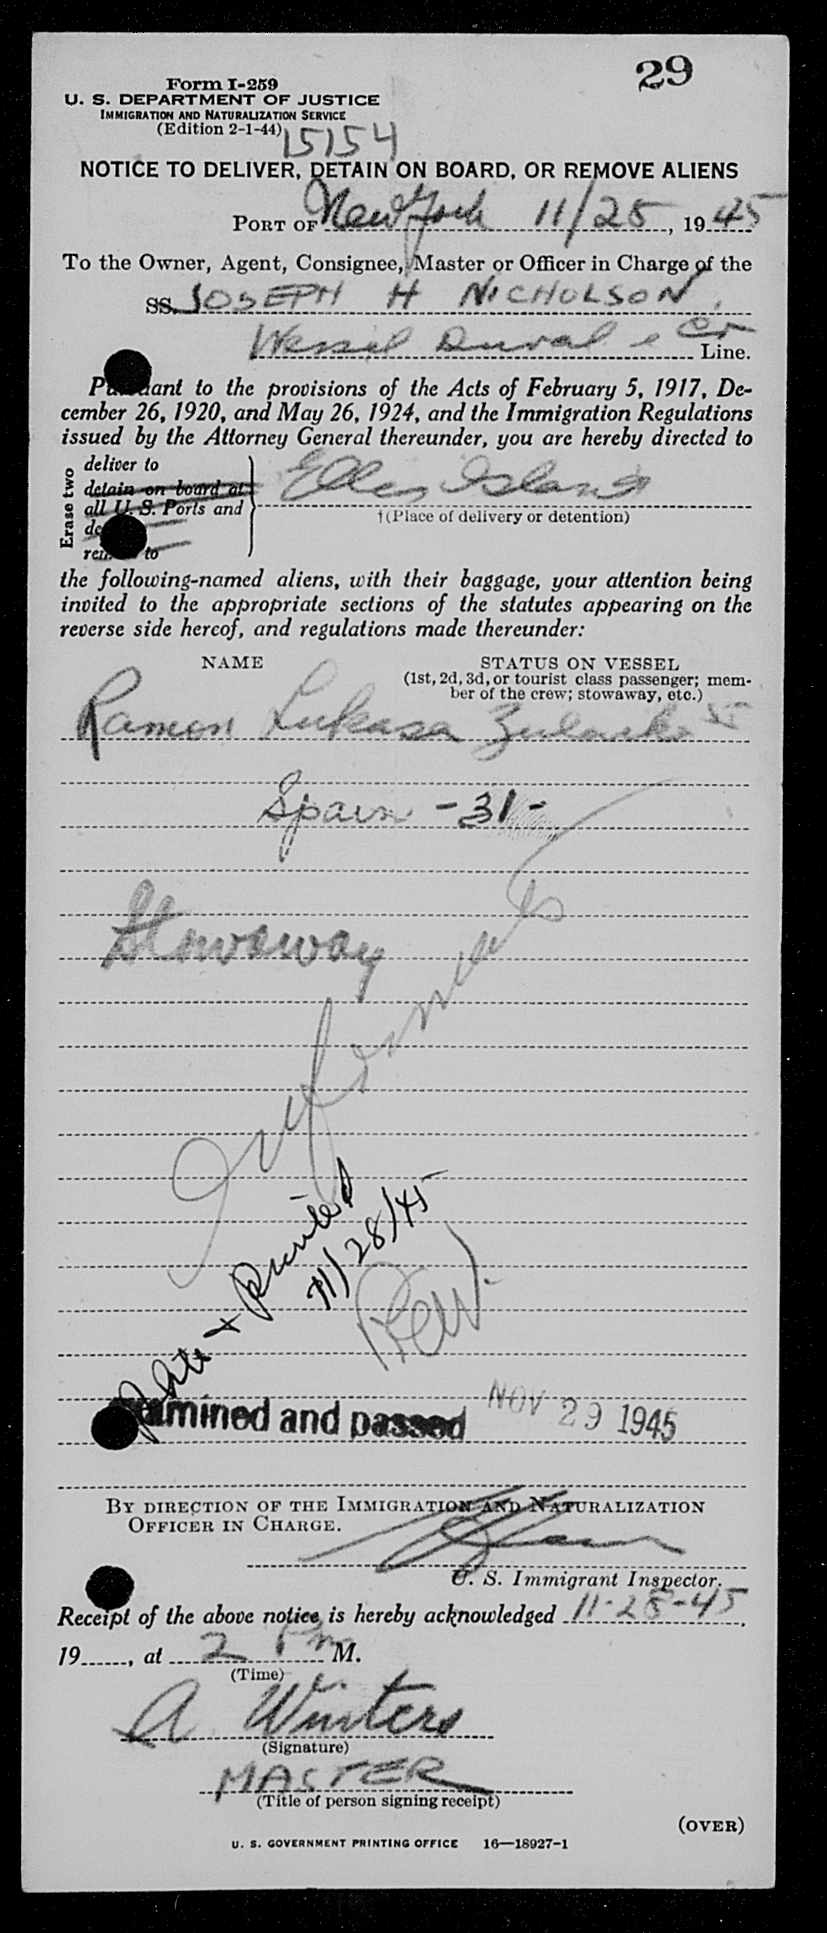 29
Form I-259
U. S. DEPARTMENT OF JUSTICE
IMMIGRATION AND NATURALIZATION SERVICE
(Edition 2-1-44)
15154
NOTICE TO DELIVER, DETAIN ON BOARD, OR REMOVE ALIENS
PORT OF New York 11/28, 1945
To the Owner, Agent, Consignee, Master or Officer in Charge of the
SS. JOSEPH H NICHOLSON,
Wessel Duval & Co Line.
Pursuant to the provisions of the Acts of February 5, 1917, De-
cember 26, 1920, and May 26, 1924, and the Immigration Regulations
issued by the Attorney General thereunder, you are hereby directed to
Erase two
deliver to
detain on board at
all U. S. Ports and
to
Ellis Island
†(Place of delivery or detention)
the following-named aliens, with their baggage, your attention being
invited to the appropriate sections of the statutes appearing on the
reverse side hereof, and regulations made thereunder:
NAME
STATUS ON VESSEL
(1st, 2d, 3d, or tourist class passenger; mem-
ber of the crew; stowaway, etc.)
Ramon Lukasa
Spain - 31 -
Stowaway
Photo & Printed
11/28/45
Examined and passed NOV 29 1945
BY DIRECTION OF THE IMMIGRATION AND NATURALIZATION
OFFICER IN CHARGE.
U. S. Immigrant Inspector.
Receipt of the above notice is hereby acknowledged 11-28-45,
19, at 2 Pm M.
(Time)
A Winters
(Signature)
MASTER
(Title of person signing receipt)
(OVER)
U. S. GOVERNMENT PRINTING OFFICE 16—18927-1